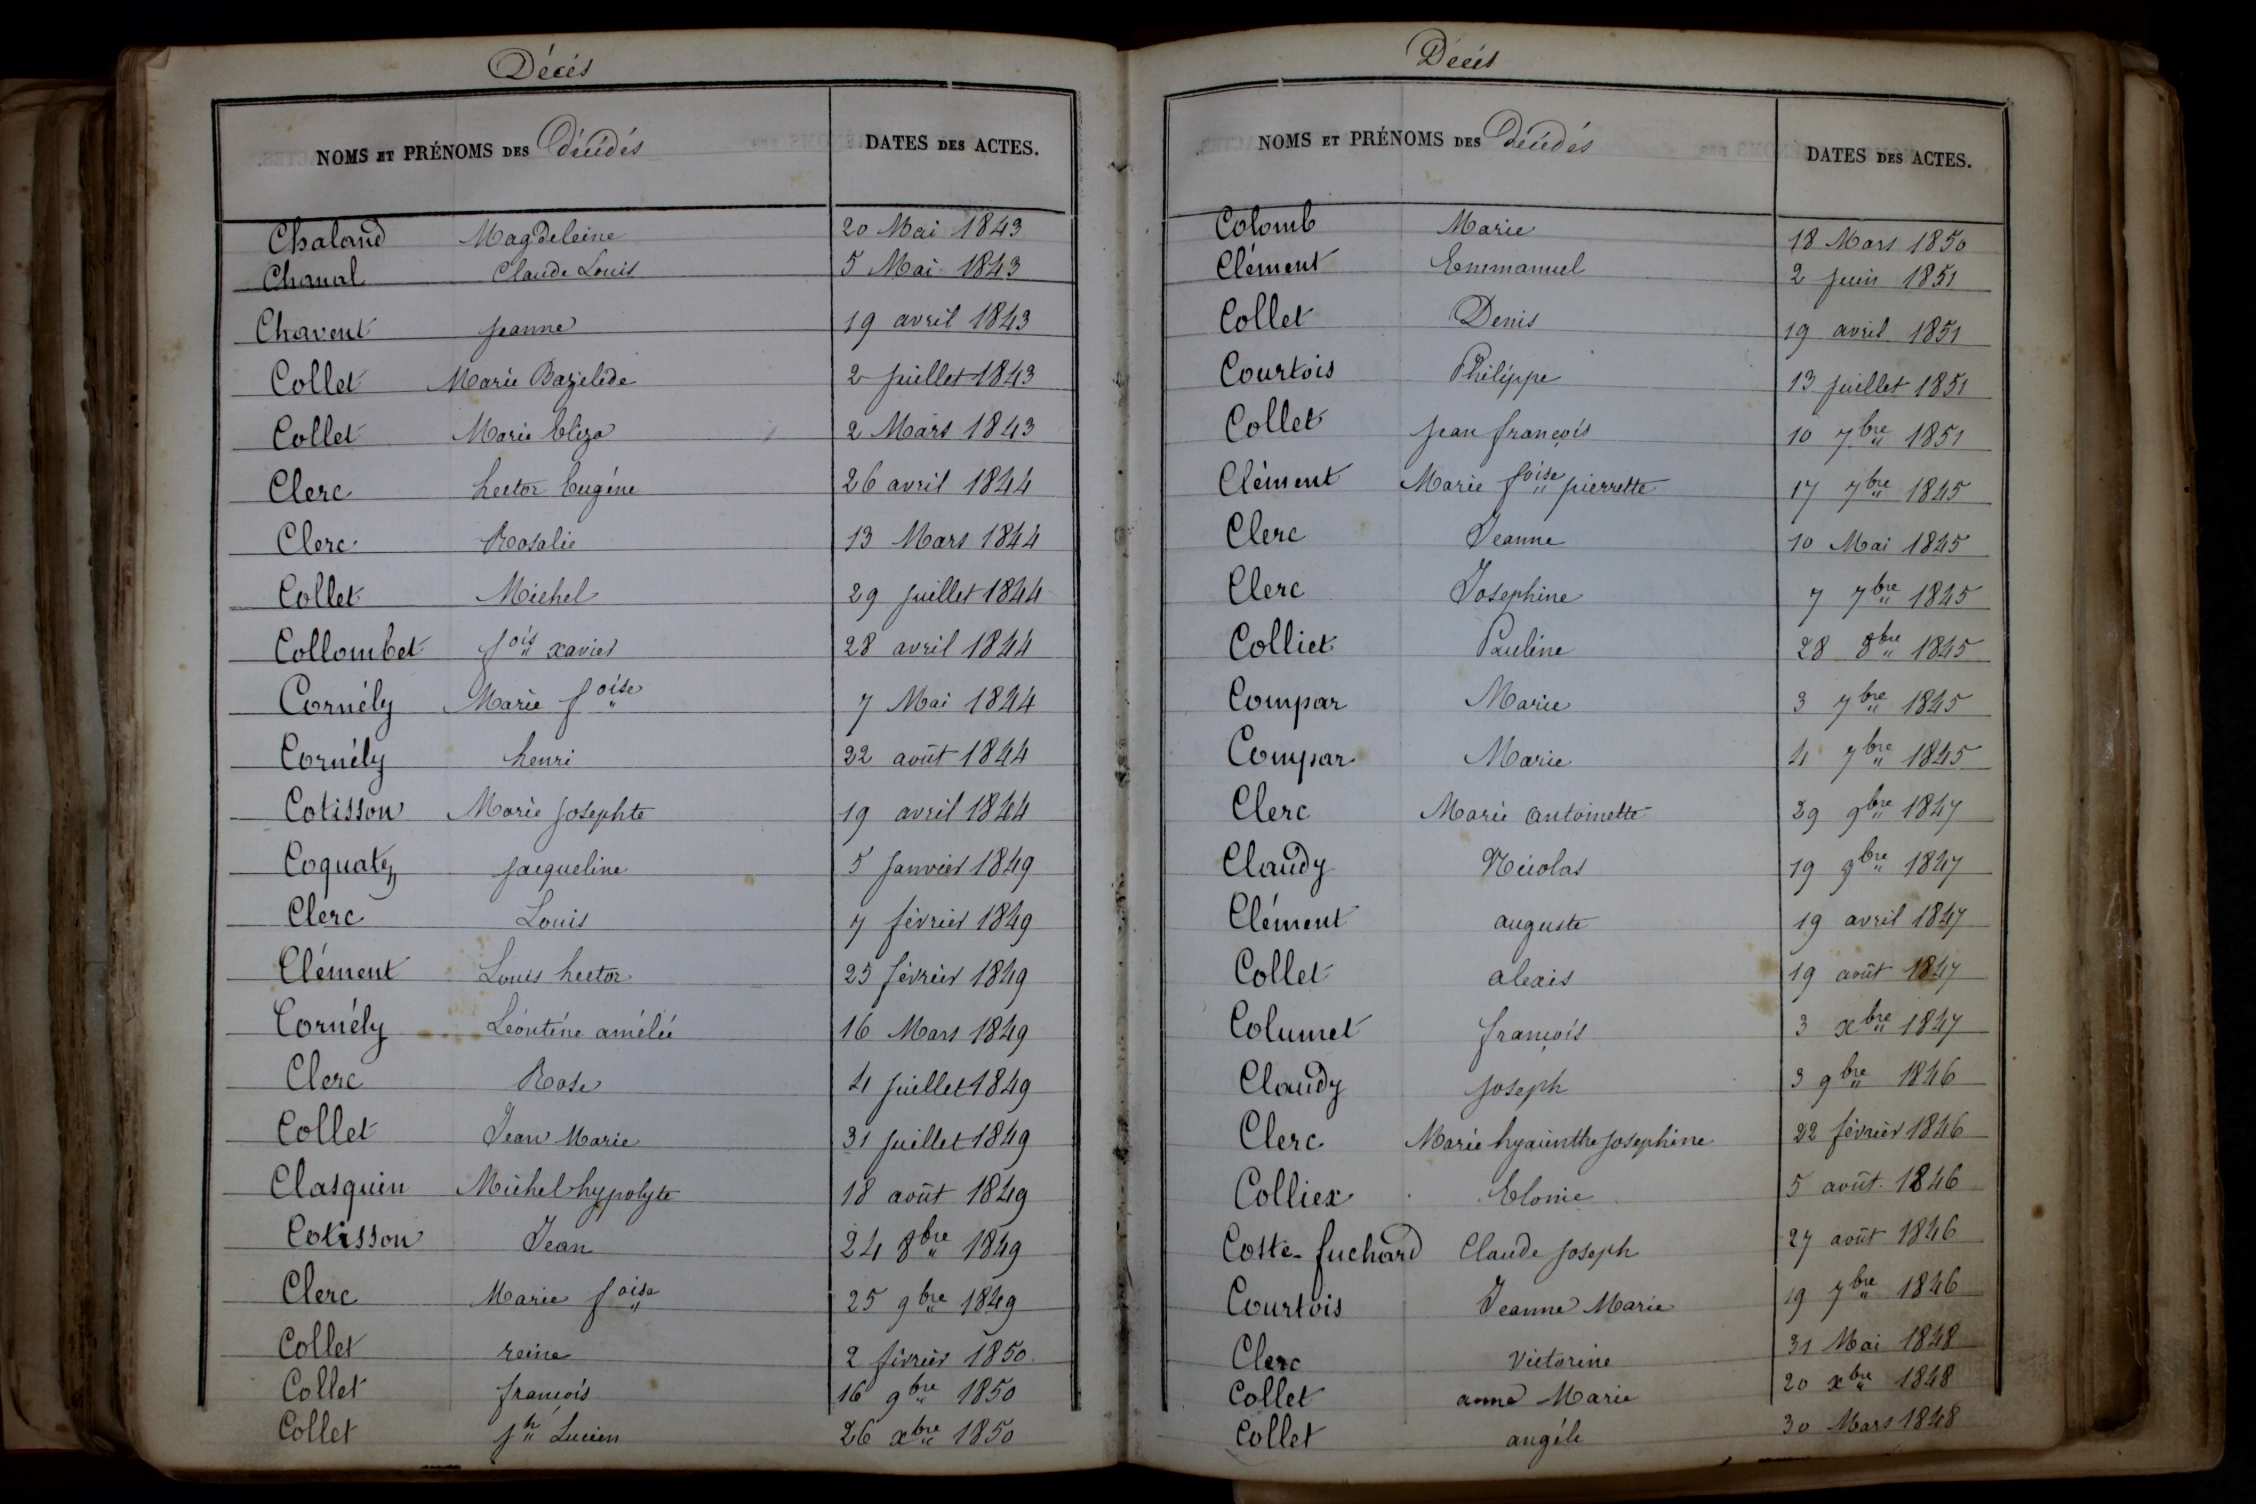 Décés
NOMS ET PRÉNOMS DES Décédés DATES DES ACTES.
Chaland Magdeleine 20 Mai 1843
Chanal Claude Louis 5 Mai 1843
Chavent Jeanne 19 avril 1843
Collet Marie Bazelide 2 juillet 1843
Collet Marie Eliza 2 Mars 1843
Clerc hector Eugéne 26 avril 1844
Clerc Rosalie 13 Mars 1844
Collet Michel 29 juillet 1844
Collombet fois xavier 28 avril 1844
Cornély Marie foise 7 Mai 1844
Cornély henri 22 août 1844
Cotisson Marie Josephte 19 avril 1844
Coquatz Jacqueline 5 Janvier 1849
Clerc Louis 7 février 1849
Clément Louis hector 25 février 1849
Cornély Léontine amélie 16 Mars 1849
Clerc Rose 4 juillet 1849
Collet Jean Marie 31 juillet 1849
Clasquin Michel hypolyte 18 août 1849
Cotisson Jean 24 8bre 1849
Clerc Marie foise 25 9bre 1849
Collet reine 2 février 1850
Collet françois 16 9bre 1850
Collet jh Lucien 26 xbre 1850
Décés
NOMS ET PRÉNOMS DES Décédés DATES DES ACTES.
Colomb Marie 18 Mars 1850
Clément Emmanuel 2 Juin 1851
Collet Denis 19 avril 1851
Courtois Philippe 13 juillet 1851
Collet Jean françois 10 7bre 1851
Clément Marie foise pierrette 17 7bre 1845
Clerc Jeanne 10 Mai 1845
Clerc Josephine 7 7bre 1845
Colliet Pauline 28 8bre 1845
Compar Marie 3 7bre 1845
Compar Marie 4 7bre 1845
Clerc Marie antoinette 29 9bre 1847
Claudy Nicolas 19 9bre 1847
Clément auguste 19 avril 1847
Collet alexis 19 août 1847
Columet françois 3 xbre 1847
Claudy Joseph 3 9bre 1846
Clerc Marie hyacinthe Josephine 22 février 1846
Colliex Elonie 5 août 1846
Coste-fuchard Claude Joseph 27 août 1846
Courtois Jeanne Marie 19 7bre 1846
Clerc victorine 31 Mai 1848
Collet anne Marie 20 xbre 1848
Collet angéle 30 Mars 1848